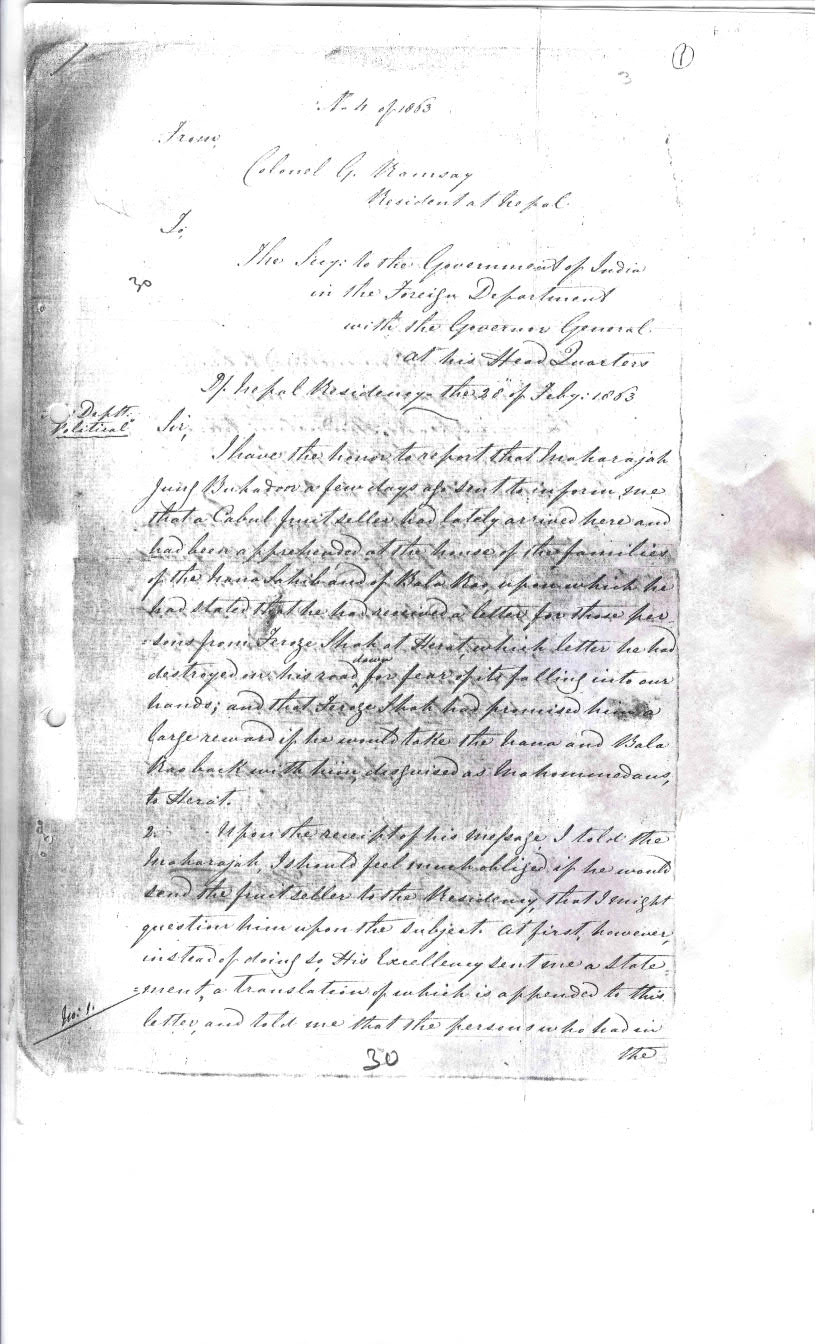 1
3
No 4 of 1863
From,
Colonel G. Ramsay
Resident at Nepal.
To,
The Secy: to the Government of India
30
in the Foreign Department
with the Governor General.
at his Head Quarters
Nepal Residency the 28th of Feby: 1863
Deptt:
Political
Sir,
I have the honor to report that Maharajah
Jung Buhadoor a few days ago sent to inform me
that a Cabul fruit seller had lately arrived here and
had been apprehended at the house of the families
of the Nana Sahib and of Bala Rao, upon which he
had stated that he had received a letter for those per-
:sons from Feroze Shah at Herat which letter he had
destroyed on his road down for fear of its falling into our
hands; and that Feroze Shah had promised him a
large reward if he would take the Nana and Bala
Rao back with him, disguised as Mahommedans,
to Herat.
2. Upon the receipt of his message I told the
Maharajah, I should feel much obliged if he would
send the fruit seller to the Residency, that I might
question him upon the subject. At first, however,
instead of doing so, His Excellency sent me a state:
=ment, a translation of which is appended to this
No: 1.
letter, and told me that the persons who lead in
the
30